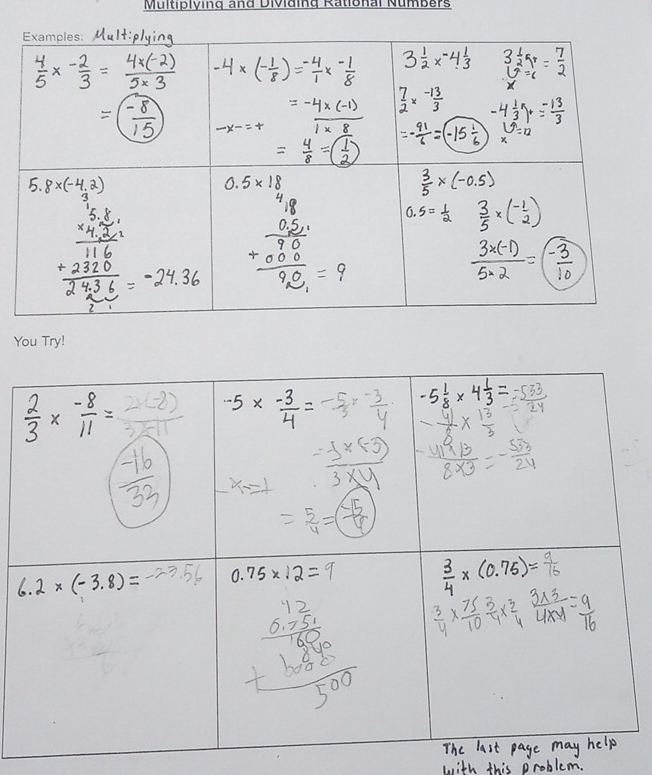 Multiplying and Dividing Rational Numbers
Examples: Multiplying
4/5 × -2/3 = 4×(-2)/5×3
= -8/15
-4 × (-1/8) = -4/1 × -1/8
= -4×(-1)/1×8
-×-=+
= 4/8 = 1/2
3 1/2 × -4 1/3
3 1/2 = 7/2
× =6
7/2 × -13/3
-4 1/3 = -13/3
× =12
= -91/6 = -15 1/6
5.8×(-4.2)
3
1
5.8
×4.2
116
+2320
24.36 = -24.36
2 1
0.5×18
4
18
0.5
90
+000
90 = 9
3/5 × (-0.5)
0.5 = 1/2 3/5 × (-1/2)
3×(-1)/5×2 = -3/10
You Try!
2/3 × -8/11 = 2×(-8)/3×11
-16/33
-5 × -3/4 = -5/3 × -3/4
= -5×(-3)/3×4
-×-=+
= 5/4 = -15/4
-5 1/8 × 4 1/3 = -533/24
-41/8 × 13/3
-41×13/8×3 = -533/24
6.2 × (-3.8) = -23.56
0.75×12 = 9
42
0.75
160
840
+ 0000
500
3/4 × (0.75) = 9/16
3/4 × 75/10 3/4 × 3/4 3×3/4×4 = 9/16
The last page may help
with this problem.